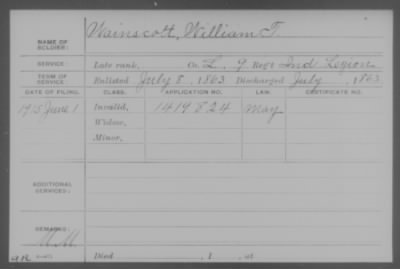 NAME OF SOLDIER: Wainscott, William T.
SERVICE: Late rank, Co. L, 9 Reg't Ind Legion
TERM OF SERVICE: Enlisted July 8, 1863 Discharged July , 1863
DATE OF FILING. CLASS. APPLICATION NO. LAW. CERTIFICATE NO.
1915 June 1 Invalid, 1419824 May
Widow,
Minor,
ADDITIONAL SERVICES:
REMARKS:
Died , 1 , at